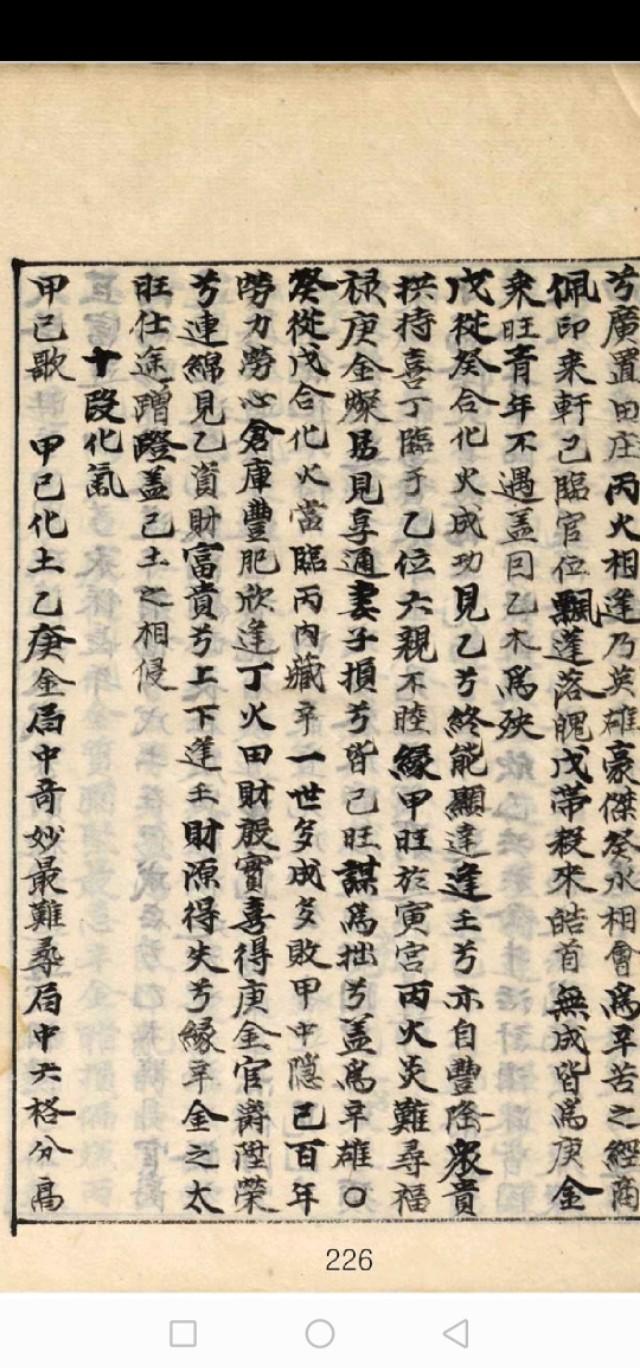 兮廣置田庄丙火相逢乃英雄豪傑癸水相會爲辛苦之經商
佩印乘軒己臨官位飄蓬落魄戊帶殺來皓首無成皆爲庚金
乘旺青年不遇盖因乙木爲殃
戊從癸合化火成功見乙兮終能顯達逢壬兮亦自豐隆衆貴
拱持喜丁臨于乙位六親不睦緣甲旺於寅宮丙火炎難尋福
祿庚金燦易見亨通妻子損兮皆己旺謀爲拙兮盖爲辛雄〇
癸從戊合化火當臨丙內藏辛一世多成多敗甲中隱己百年
勞力勞心倉庫豐肥欣逢丁火田財殷實喜得庚金官爵陞榮
兮連綿見乙資財富貴兮上下逢壬財源得失兮緣辛金之太
旺仕途蹭蹬盖己土之相侵
十段化氣
甲己歌 甲己化土乙庚金局中奇妙最難尋局中六格分高
226